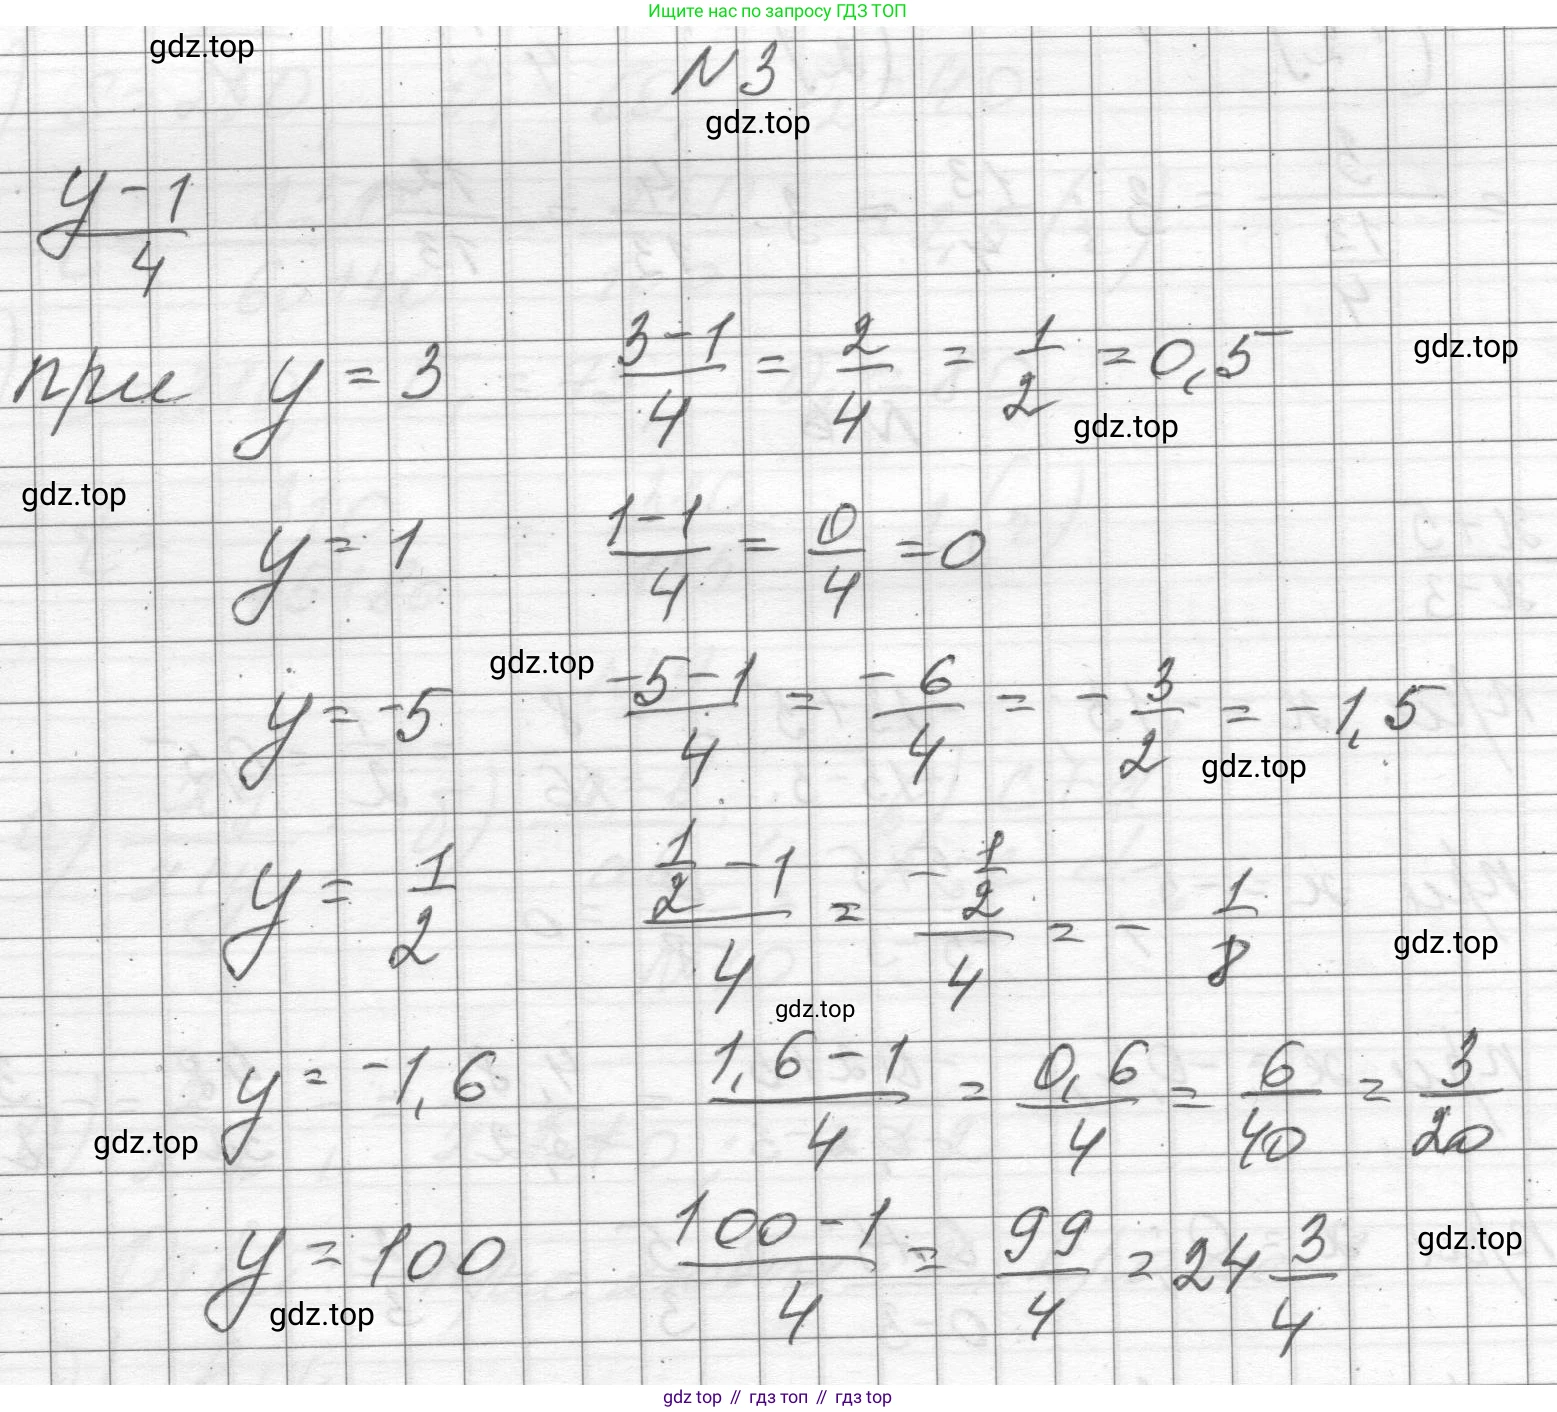 Ищите нас по запросу ГДЗ ТОП
gdz.top
N 3
gdz.top
(y - 1)/4
при y = 3 (3 - 1)/4 = 2/4 = 1/2 = 0,5
gdz.top
gdz.top
gdz.top
y = 1 (1 - 1)/4 = 0/4 = 0
gdz.top
y = -5 (-5 - 1)/4 = -6/4 = - 3/2 = -1,5
gdz.top
y = 1/2 (1/2 - 1)/4 = (- 1/2)/4 = - 1/8
gdz.top
gdz.top
y = -1,6 (1,6 - 1)/4 = 0,6/4 = 6/40 = 3/20
gdz.top
y = 100 (100 - 1)/4 = 99/4 = 24 3/4
gdz.top
gdz.top
gdz top // гдз топ // гдз top